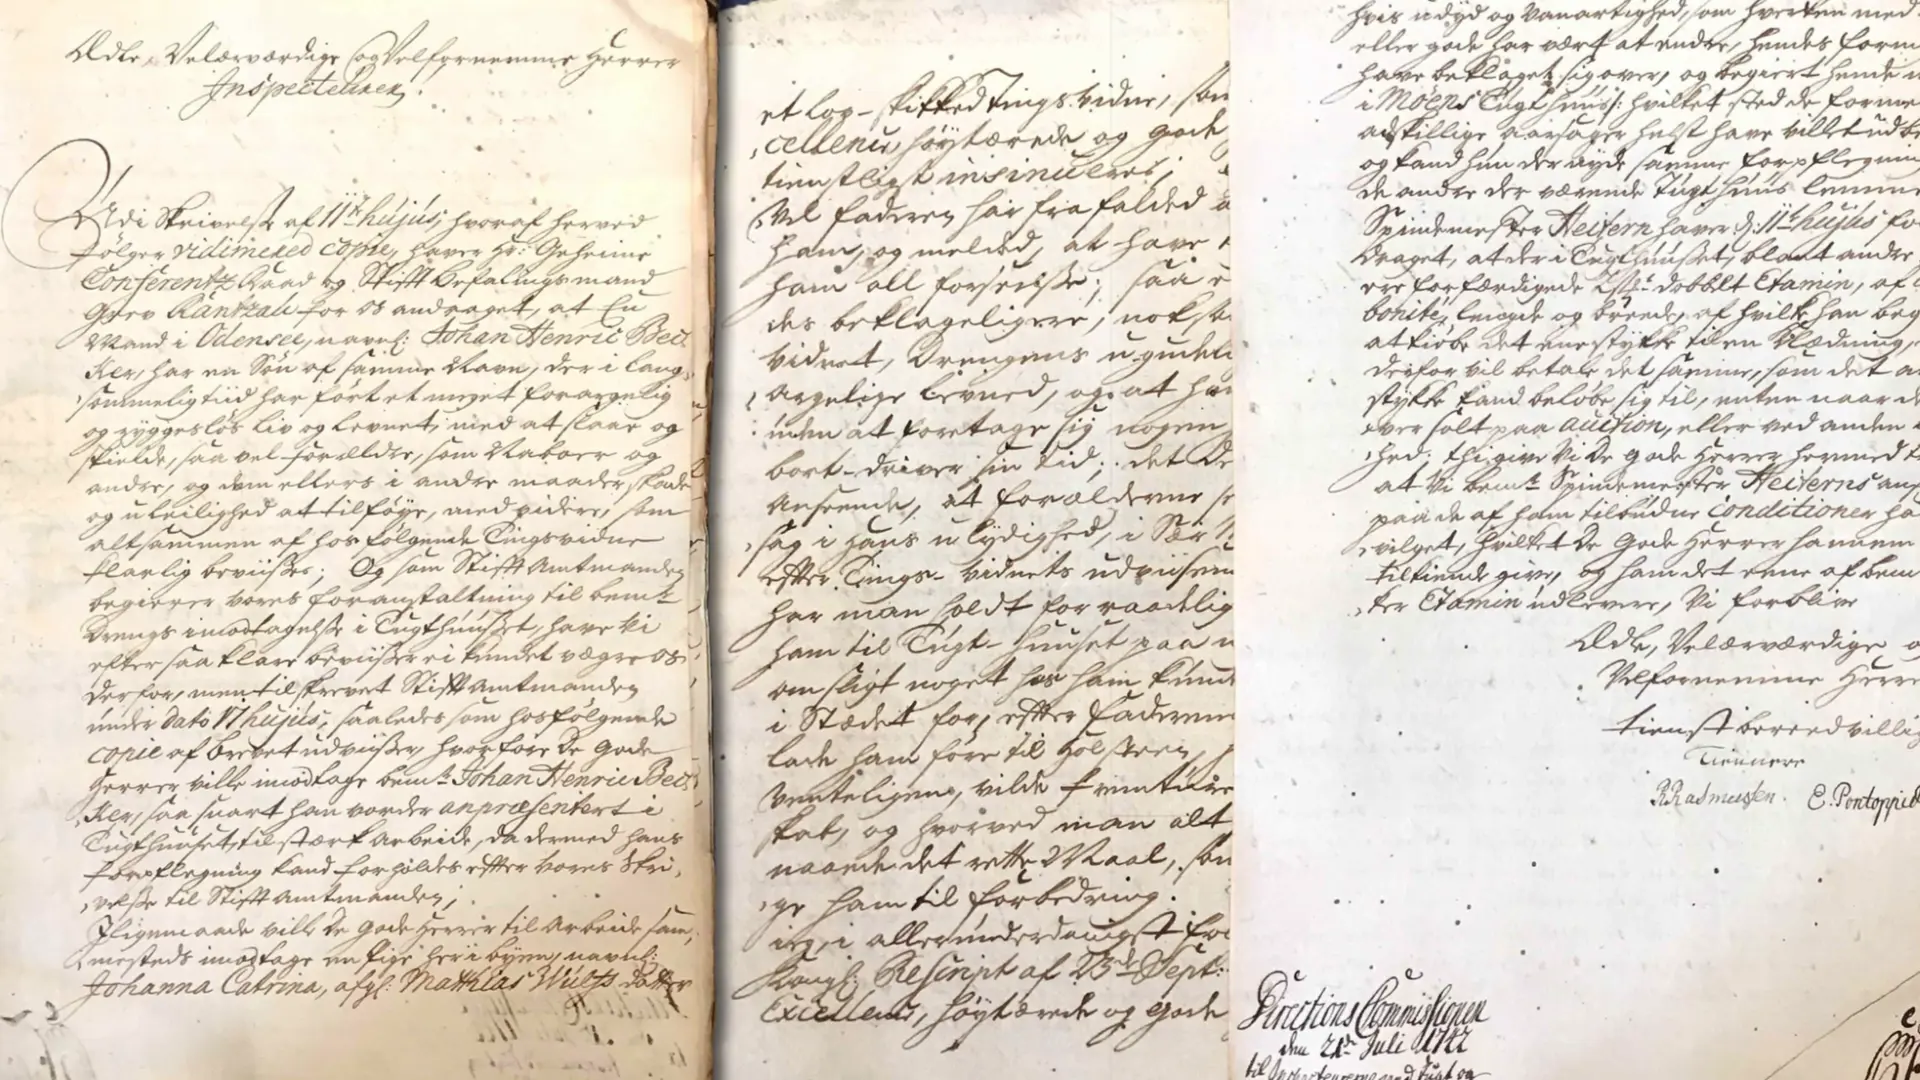 Ædle, Velærværdige og Velfornemme Herrer
Inspecteurer.
Udi Skrivelse af 11te hujus, hvoraf herved
følger vidimered copie, haver Hr: Geheime
Conferentz Raad og Stift Befalingsmand
Grev Rantzau for os andraget, at En
Mand i Odensee, navnl: Johan Henric Bec
ker, har en Søn af samme Navn, der i lang-
sommelig tiid har ført et meget forargelig
og ryggesløs Liv og Levnet, med at slaae og
skielde, saa vel forældre, som Naboer og
andre, og dem ellers i andre maader, skade
og uleilighed at tilføye, med videre, som
altsammen af hosfølgende Tingsvidne
klarlig beviises; Og som Stift Amtmanden
begierer vores foranstaltning til bemte
Drengs imodtagelse i Tugthuuset, have Vi
efter saa klare beviiser ei kundet vægre os
derfor, men tilskrevet Stift Amtmanden
under dato 17 hujus, saaledes som hosfølgende
copie af brevet udviiser, hvorfore De gode
Herrer ville imodtage bemte Johan Henric Bec
ker, saa snart han vorder anpræsentert i
Tugthuuset, til stærk arbeide, da dermed hans
forpflegning kand forholdes efter vores Skri-
velse til Stift Amtmanden;
Iligemaade ville De gode Herrer til arbeide sam-
mesteds imodtage en pige her i byen, navnl:
Johanna Catrina, afgl: Matthias Wulfs datter
et lov-skikked Tings vidne, som
cellence, høytærede og gode
tienstligst insinueres;
Vel faderen har frafalded
ham, og melded, at have
ham all forseelse; saa e
des beklageligere, noksom
vidnet, Drengens ugudeli
argelige Levned, og at han
uden at foretage sig nogen
bort-driver sin tid; det de
anseende, at forælderne se
sag i hans ulydighed, i Sær
efter Tings-vidnets udviisen
har man holdt for raadelig
ham til Tugt-huuset paa
om sligt noget hos ham kunde
i Stædet for, efter faderens
lade ham føre til Holsteen,
venteligen, vilde
skab, og hvorved man alt
naaede det rette Maal, som
ge ham til forbedring.
ieg, i allerunderdanigst
Kongl: Rescript af 23de Sept:
Excellence, høytærede og gode
hvis udyd og vanartighed, som hverken med
eller gode har vært at endre, hendes
have beklaget sig over, og begiert hende
i Møens Tugthuus: hvilket sted de
adskillige aarsager helst have villet udbe
og kand hun der nyde samme forpflegning
de andre der værende Tugthuus lemme
Spindemester Heitern haver d: 11te hujus
draget, at der i Tugthuuset, blant andre
ere forfærdigede 2 st: dobbelt Etamin, af
bonité, lengde og breede, af hvilke han beg
at kiøbe det ene stykke til en Klædning,
derfor vil betale det samme, som det a
stykke kand beløbe sig til, enten naar
ver solt paa auction, eller ved anden
hed: thi give Vi De gode Herrer hermed
at Vi bemte Spindemester Heiterns
paa de af ham tilbudne Conditioner
vilget, hvilket De gode Herrer hannem
tilkiende give, og ham det eene af bem
ker Etamin udlevere, Vi forblive
Ædle, Velærværdige
Velfornemme Herre
tienstbereedvillig
Tiennere
R Rasmussen. E. Pontoppid
Directions Commissionen
den 21de Juli 1747
til Inspecteurerne ved Tugt og